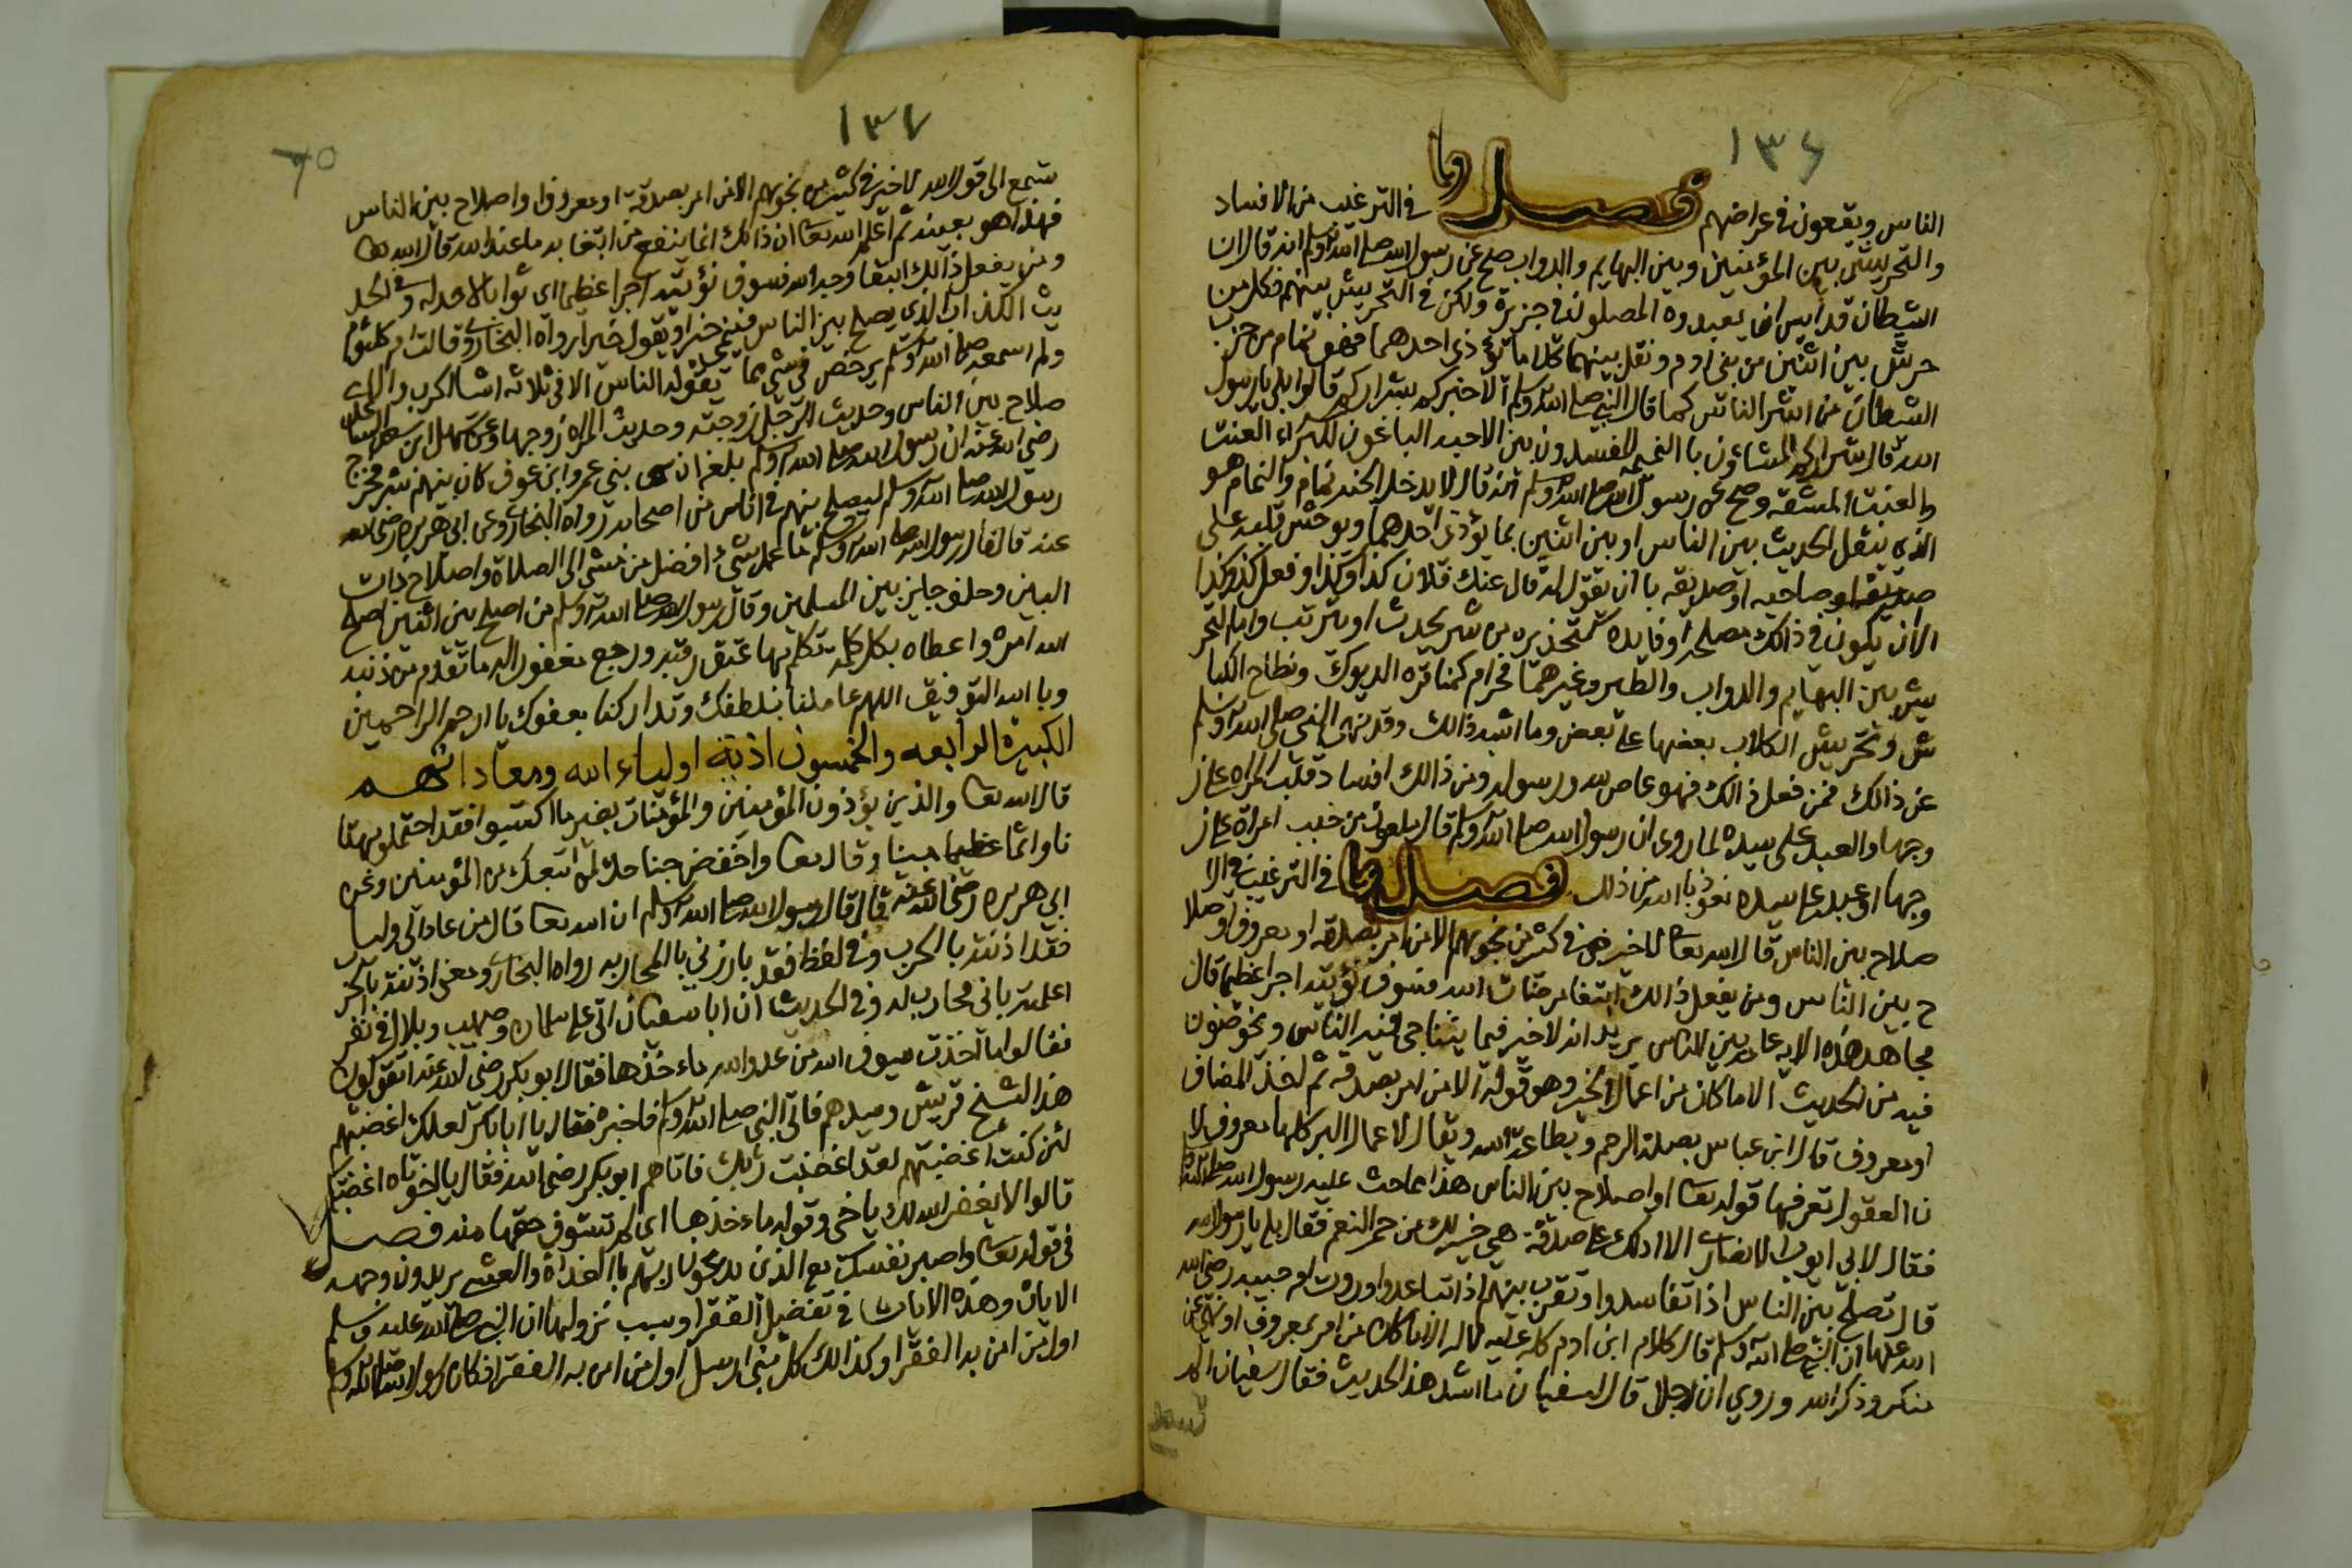 ١٣٦
الناس ويقعون في عراضهم فصل وما في الترغيب من الافساد
والتحريش بين المؤمنين وبين البهايم والدواب صح عن رسول الله صلى الله وسلم انه قال ان
الشيطان قد ايس ان يعبدوه المصلون في جزيرة ولكن في التحريش بينهم فكل من
حرش بين اثنين من بني ادم ونقل بينهما كلاما يؤذي احدهما فهو نمام من حزب
الشيطان من اشر الناس كما قال النبي صلى الله وسلم الا اخبركم بشراركم قالوا بلى يا رسول
الله قال شراركم المشاؤن با النميمه المفسدون بين الاحبه الباغون للبراء العنت
والعنت المشقه وصح عن رسول الله صلى الله وسلم انه قال لا يدخل الجنه نمام والنمام هو
الذي ينقل الحديث بين الناس او بين اثنين بما يؤذي احدهما ويوحش قلبه على
صديقه او صاحبه او صديقه با ان يقول له قال عنك فلان كذا وكذا وفعل كذا وكذا
الا ان يكون في ذالك مصلحه او فايده كتحذيره من شر يحدث او يترتب واما التحر
يش بين البهايم والدواب والطير وغيرهما فحرام كمناقره الديوك ونطاح الكبا
ش وتحريش الكلاب بعضها على بعض وما اشبه ذالك وقد نهى النبي صلى الله وسلم
عن ذالك فمن فعل ذالك فهو عاص لله ورسوله ومن ذالك افساد قلب المراه على ز
وجها والعبد على سيده لما روي ان رسول الله صلى الله وسلم قال ملعون من خبب امراة على ز
وجها او عبد على سيده نعوذ بالله من ذلك فصل وما في الترغيب في الا
صلاح بين الناس قال الله تعا لا خير في كثير من نجوهم الا من امر بصدقه او معروف او صلا
ح بين الناس ومن يفعل ذالك ابتغا مرضات الله فسوف نؤتيه اجرا عظيما قال
مجاهد هذه الايه عامه بين الناس يريد انه لا خير فيما يتناجى فيه الناس ويخوضون
فيه من الحديث الا ما كان من اعمال الخير وهو قوله الا من امر بصدقه ثم لخذف المضاف
او معروف قال ابن عباس بصلة الرحم وبطاعة الله ويقال لا عمال البر كلها معروف لا
ن العقول تعرفها قوله تعا او اصلاح بين الناس هذا مما حث عليه رسول الله صلى الله
فقال لابي ايوب الانصاري الا ادلك على صدقة هي خير لك من حمر النعم فقال بلى يا رسول الله
قال تصلح بين الناس اذا تفاسدوا وتقرب بينهم اذا تباعدوا وروت ام حبيبه رضي الله
الله عنها ان النبي صلى الله وسلم قال كلام ابن ادم كله عليه لا له الا ما كان من امر بمعروف او نهي عن
منكر وذكر الله وروي ان رجلا قال لسفيان ما اشد هذا الحديث فقال سفيان الم
تسمع
١٣٧
٦٥
ستمع الى قول الله لا خير في كثير من نجوهم الا من امر بصدقة او معروف او اصلاح بين الناس
فهذا هو بعينه ثم اعلم الله تعا ان ذالك انما ينفع من ابتغا به ما عند الله قال الله تعا
ومن يفعل ذالك ابتغا وجه الله فسوف نؤتيه اجرا عظيما اي ثوابا لا حد له وفي الحد
يث الكذاب الذي يصلح بين الناس فينمي خيرا ويقول خيرا رواه البخاري وقالت ام كلثوم
ولم اسمعه صلى الله وسلم يرخص في شي مما يقوله الناس الا في ثلاثه اشيا الحرب والا
صلاح بين الناس وحديث الرجل زوجته وحديث المراه زوجها وعن سهل ابن سعد الساعدي
رضي الله عنه ان رسول الله صلى الله وسلم بلغه ان بني عمرو ابن عوف كان بينهم شر فخرج
رسول الله صلى الله وسلم ليصلح بينهم في اناس من اصحابه رواه البخاري وعن ابي هريره رضي الله
عنه قال قال رسول الله صلى الله وسلم ما عمل شيء افضل من مشي الى الصلاة واصلاح ذات
البين وحلف جايز بين المسلمين وقال رسول الله صلى الله وسلم من اصلح بين اثنين اصلح
الله امره واعطاه بكل كلمه تكلم بها عتق رقبه ورجع مغفور اليه ما تقدم من ذنبه
وبا الله التوفيق اللهم عاملنا بلطفك وتداركنا بعفوك يا ارحم الراحمين
الكبيرة الرابعه والخمسون اذية اولياء الله ومعاداتهم
قال الله تعا والذين يؤذون المؤمنين والمؤمنات بغير ما اكتسبوا فقد احتملو بهتا
نا واثما عظيما مبينا وقال تعا واخفض جناحك لمن اتبعك من المؤمنين وعن
ابي هريره رضي الله عنه قال قال رسول الله صلى الله وسلم ان الله تعا قال من عاد الي وليا
فقد اذنته با الحرب وفي لفظ فقد بارزني با المحاربه رواه البخاري ومعنى اذنته بالحر
اعلمته باني محارب له وفي الحديث ان ابا سفيان اتى على سلمان وصهيب وبلال في نفر
فقالوا ما اخذت سيوف الله من عدو الله ماء خذها فقال ابو بكر رضي الله عنه اتقولون
هذا لشيخ قريش وسيدهم فاتى النبي صلى الله وسلم فاخبره فقال يا ابا بكر لعلك اغضبتهم
لئن كنت اغضبتهم لقد اغضبت ربك فاتاهم ابو بكر رضي الله فقال يا اخوتاه اغضبتكم
قالوا لا يغفر الله لك يا اخي وقوله ماء خذها اي لم تستوف حقها منه فصل
في قوله تعا واصبر نفسك مع الذين يدعون ربهم با الغداة والعشي يريدون وجهه
الايات وهذه الايات في تفضيل الفقرا وسبب نزولها ان النبي صلى الله عليه وسلم
اول من امن به الفقرا وكذالك كل نبي ارسل اول من امن به الفقرا فكان رسول الله صلى الله وسلم